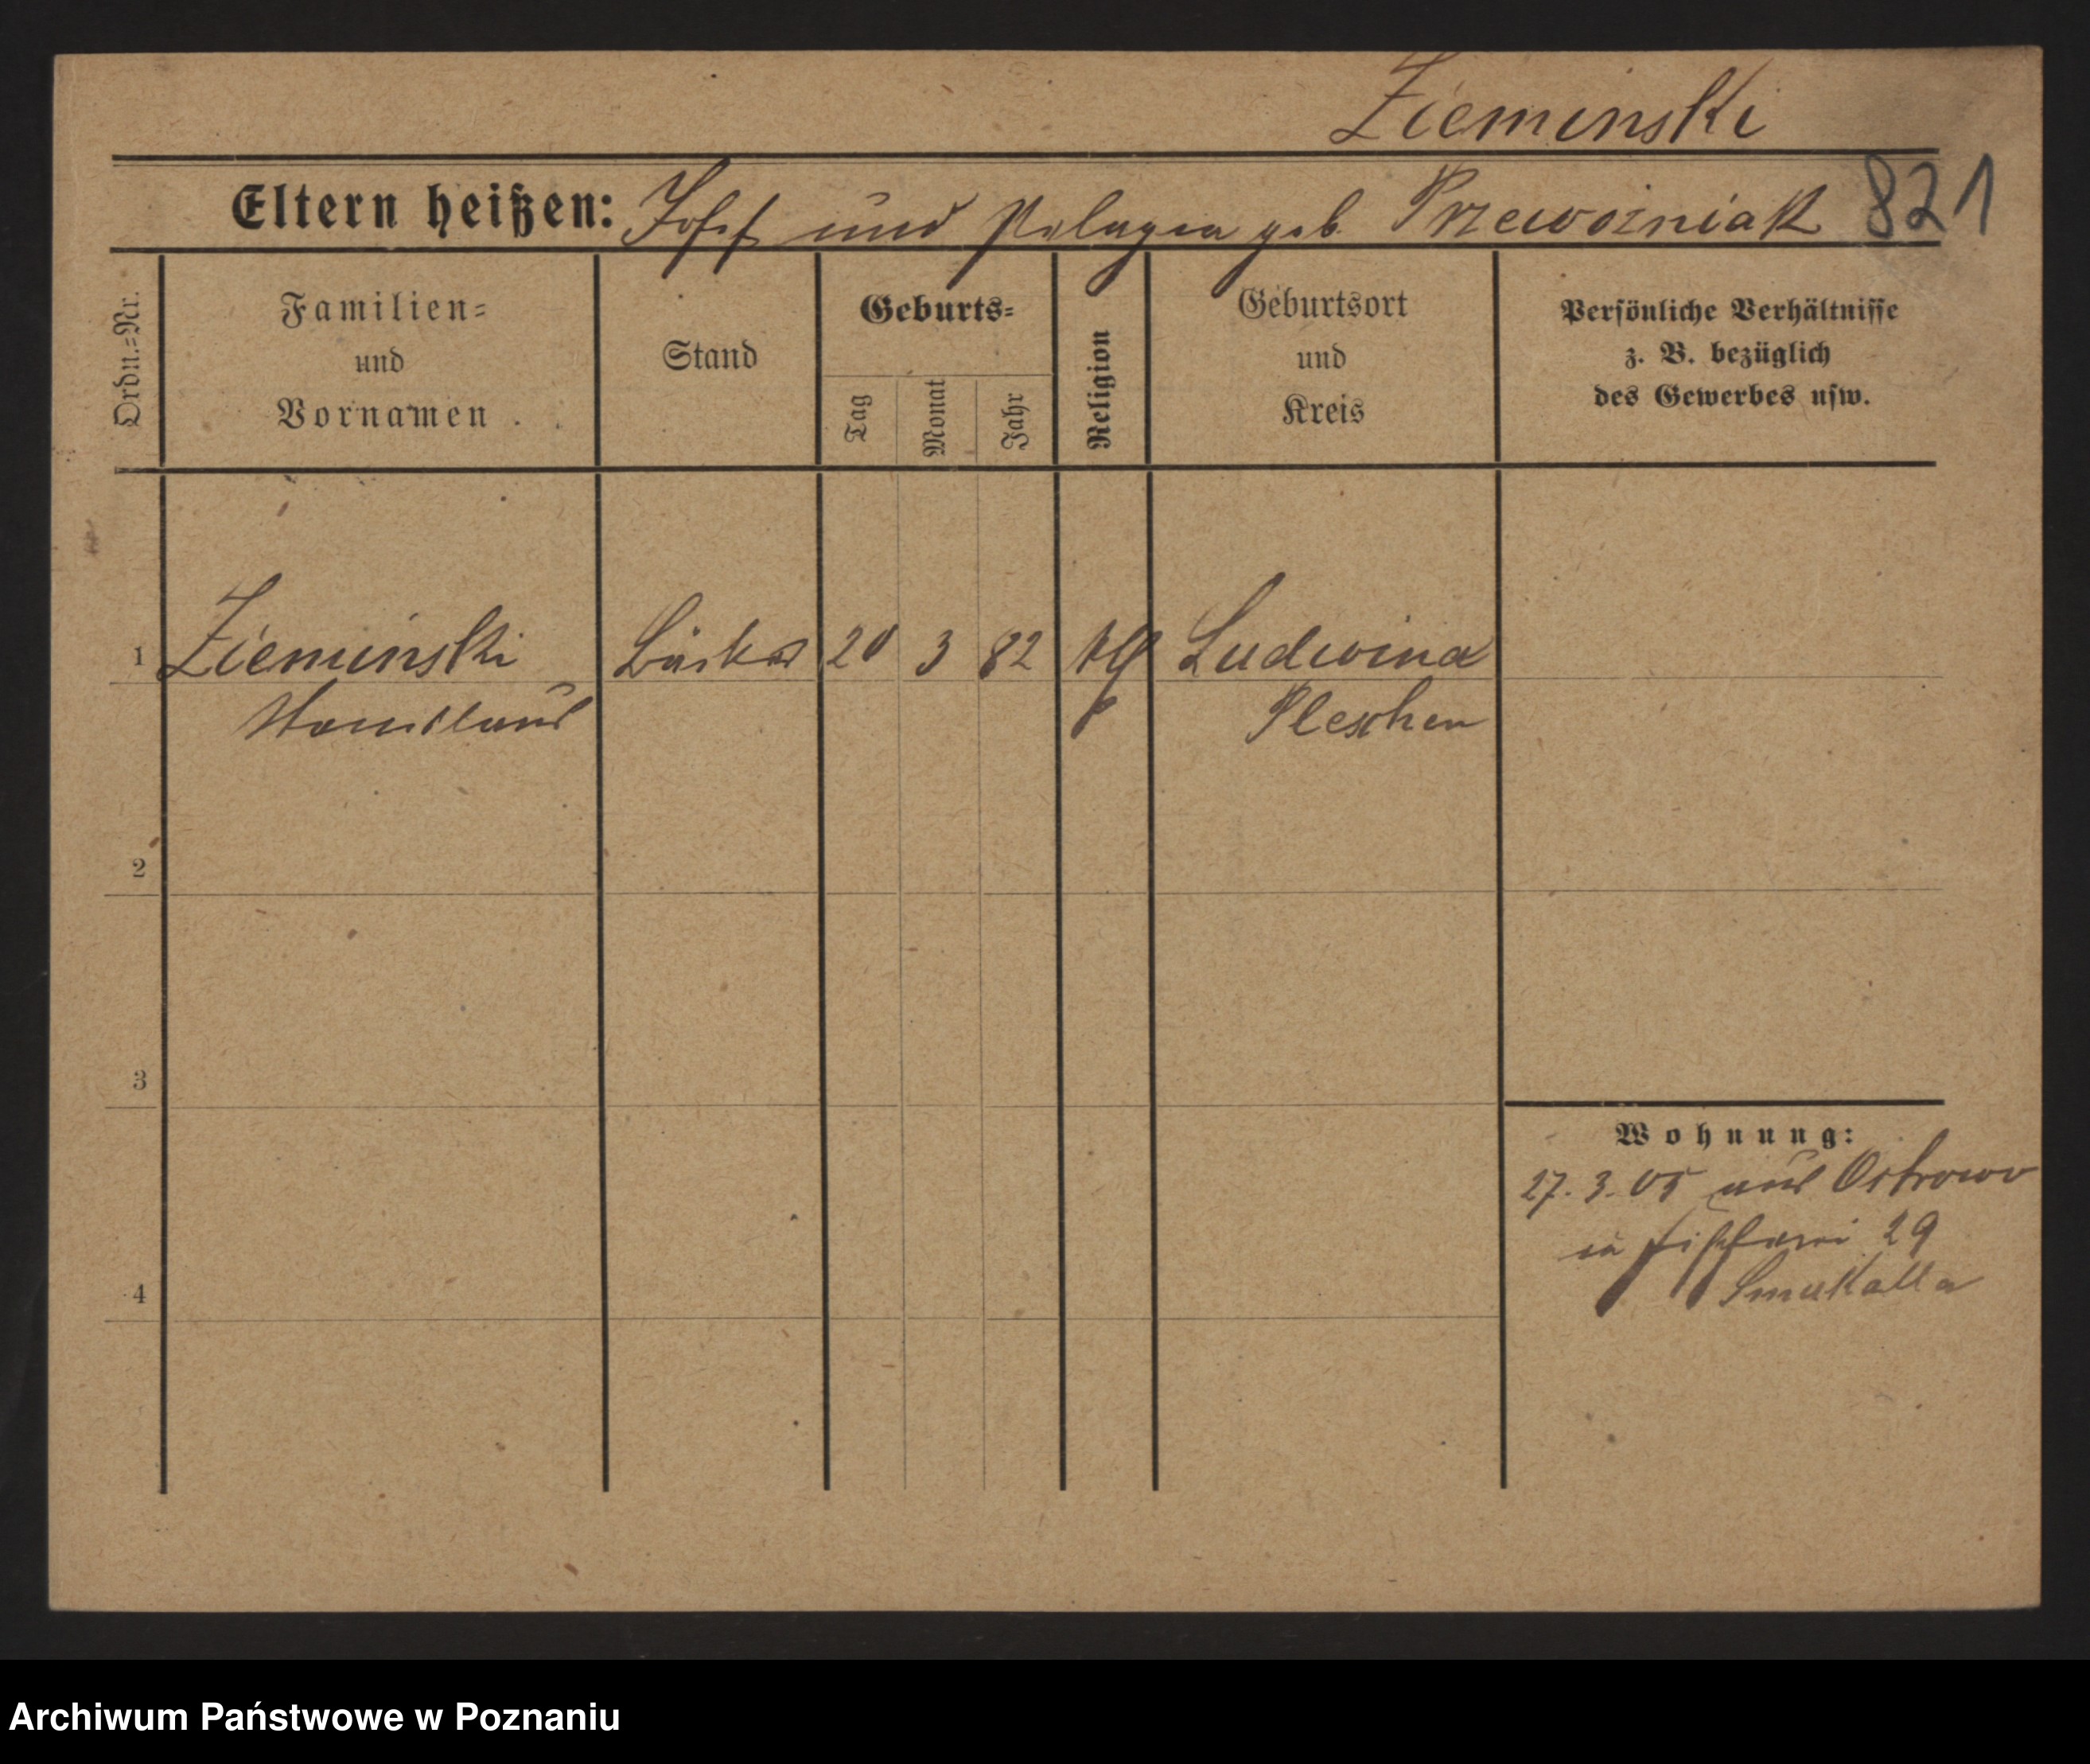 Zieminski
Eltern heißen: Josef und Pelagia geb. Przewozniak 821
Ordn.=Nr.
Familien=
und
Vornamen
Stand
Geburts=
Tag
Monat
Jahr
Religion
Geburtsort
und
Kreis
Persönliche Verhältnisse
z. B. bezüglich
des Gewerbes usw.
1 Zieminski Bäcker 20 3 82 Ludwina
Stanislaus Pleschen
2
3
4
Wohnung:
27. 3. 05 aus Ostrowo
in Fischerei 29
Smukalla
Archiwum Państwowe w Poznaniu